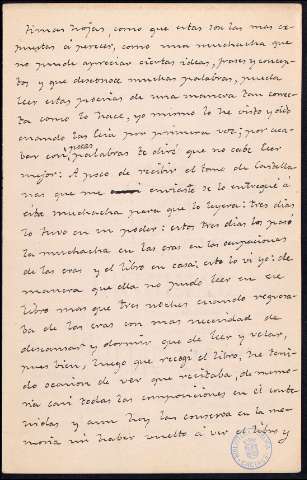 timas hojas, como que estas son las mas es-
puestas á perder, como una muchacha que
no puede apreciar ciertas ideas, frases y concep-
tos y que desconoce muchas palabras, pueda
leer estas poesías de una manera tan correc-
ta como lo hace, yo mismo lo he visto y oido
cuando las leia por primera vez; por aca-
bar con pocas palabras te diré que no cabe leer
mejor: A poco de recibir el tomo de Castella-
nas que me enviaste se lo entregué á
esta muchacha para que lo leyera: tres dias
lo tuvo en su poder: estos tres dias los pasó
la muchacha en las eras en las ocupaciones
de las eras y el libro en casa; esto lo vi yo: de
manera que ella no pudo leer en ese
libro mas que tres noches cuando regresa-
ba de las eras con mas necesidad de
descansar y dormir que de leer y velar,
pues bien, luego que recogí el libro, he teni-
do ocasion de ver que recitaba, de memo-
ria casi todas las composiciones en él conte-
nidas y aun hoy las conserva en la me-
moria sin haber vuelto á ver el libro y